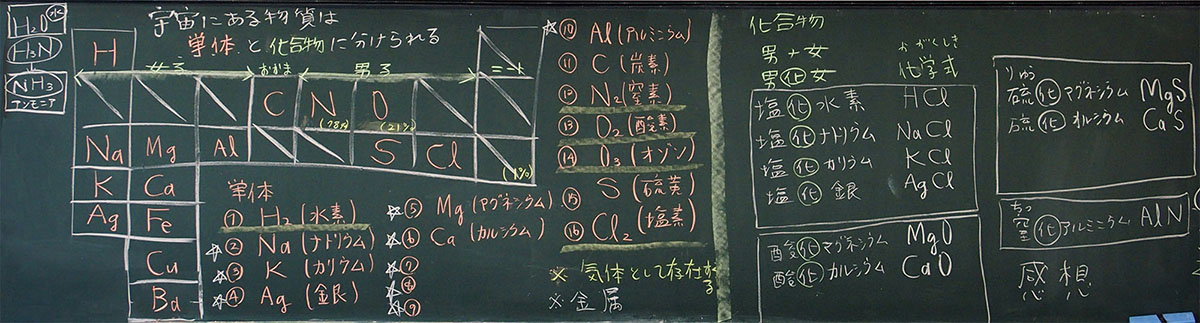 H₂O 水
H₃N
↓
NH₃
アンモニア
宇宙にある物質は
単体と化合物に分けられる
H
女子 おかま 男子 ニート
C N (78%) O (21%)
Na Mg Al S Cl
(1%)
K Ca
Ag Fe
Cu
Ba
単体
① H₂ (水素)
☆② Na (ナトリウム)
☆③ K (カリウム)
☆④ Ag (銀)
☆⑤ Mg (マグネシウム)
☆⑥ Ca (カルシウム)
☆⑦
☆⑧
☆⑨
☆⑩ Al (アルミニウム)
⑪ C (炭素)
⑫ N₂ (窒素)
⑬ O₂ (酸素)
⑭ O₃ (オゾン)
⑮ S (硫黄)
⑯ Cl₂ (塩素)
※ 気体として存在する
※ 金属
化合物
男+女
男化女
かがくしき
化学式
塩化水素 HCl
塩化ナトリウム NaCl
塩化カリウム KCl
塩化銀 AgCl
酸化マグネシウム MgO
酸化カルシウム CaO
りゅう
硫化マグネシウム MgS
硫化カルシウム CaS
ちっ
窒化アルミニウム AlN
感想